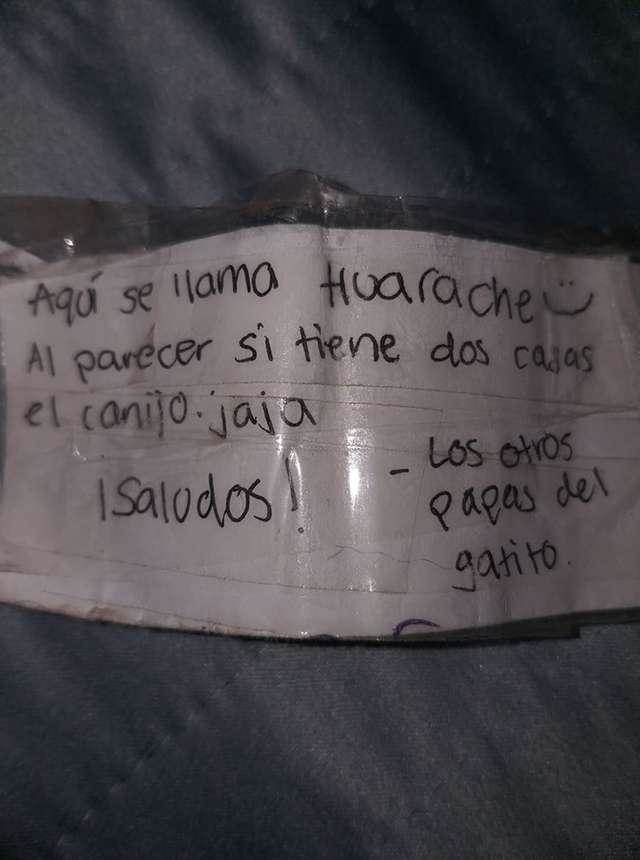 Aquí se llama Huarache
Al parecer si tiene dos casas
el canijo. jaja
¡Saludos!
- Los otros
papas del
gatito.